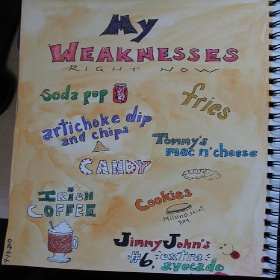 My
Weaknesses
Right Now
soda pop
fries
artichoke dip
and chips
Tommy's
mac n' cheese
Candy
Irish
Coffee
Cookies
Jimmy John's
#6, extra
avocado